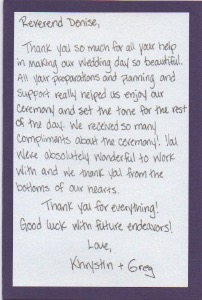 Reverend Denise,
Thank you so much for all your help
in making our wedding day so beautiful.
All your preparations and planning and
support really helped us enjoy our
ceremony and set the tone for the rest
of the day. We received so many
compliments about the ceremony! You
were absolutely wonderful to work
with and we thank you from the
bottoms of our hearts.
Thank you for everything!
Good luck with future endeavors!
Love,
Khrystin + Greg